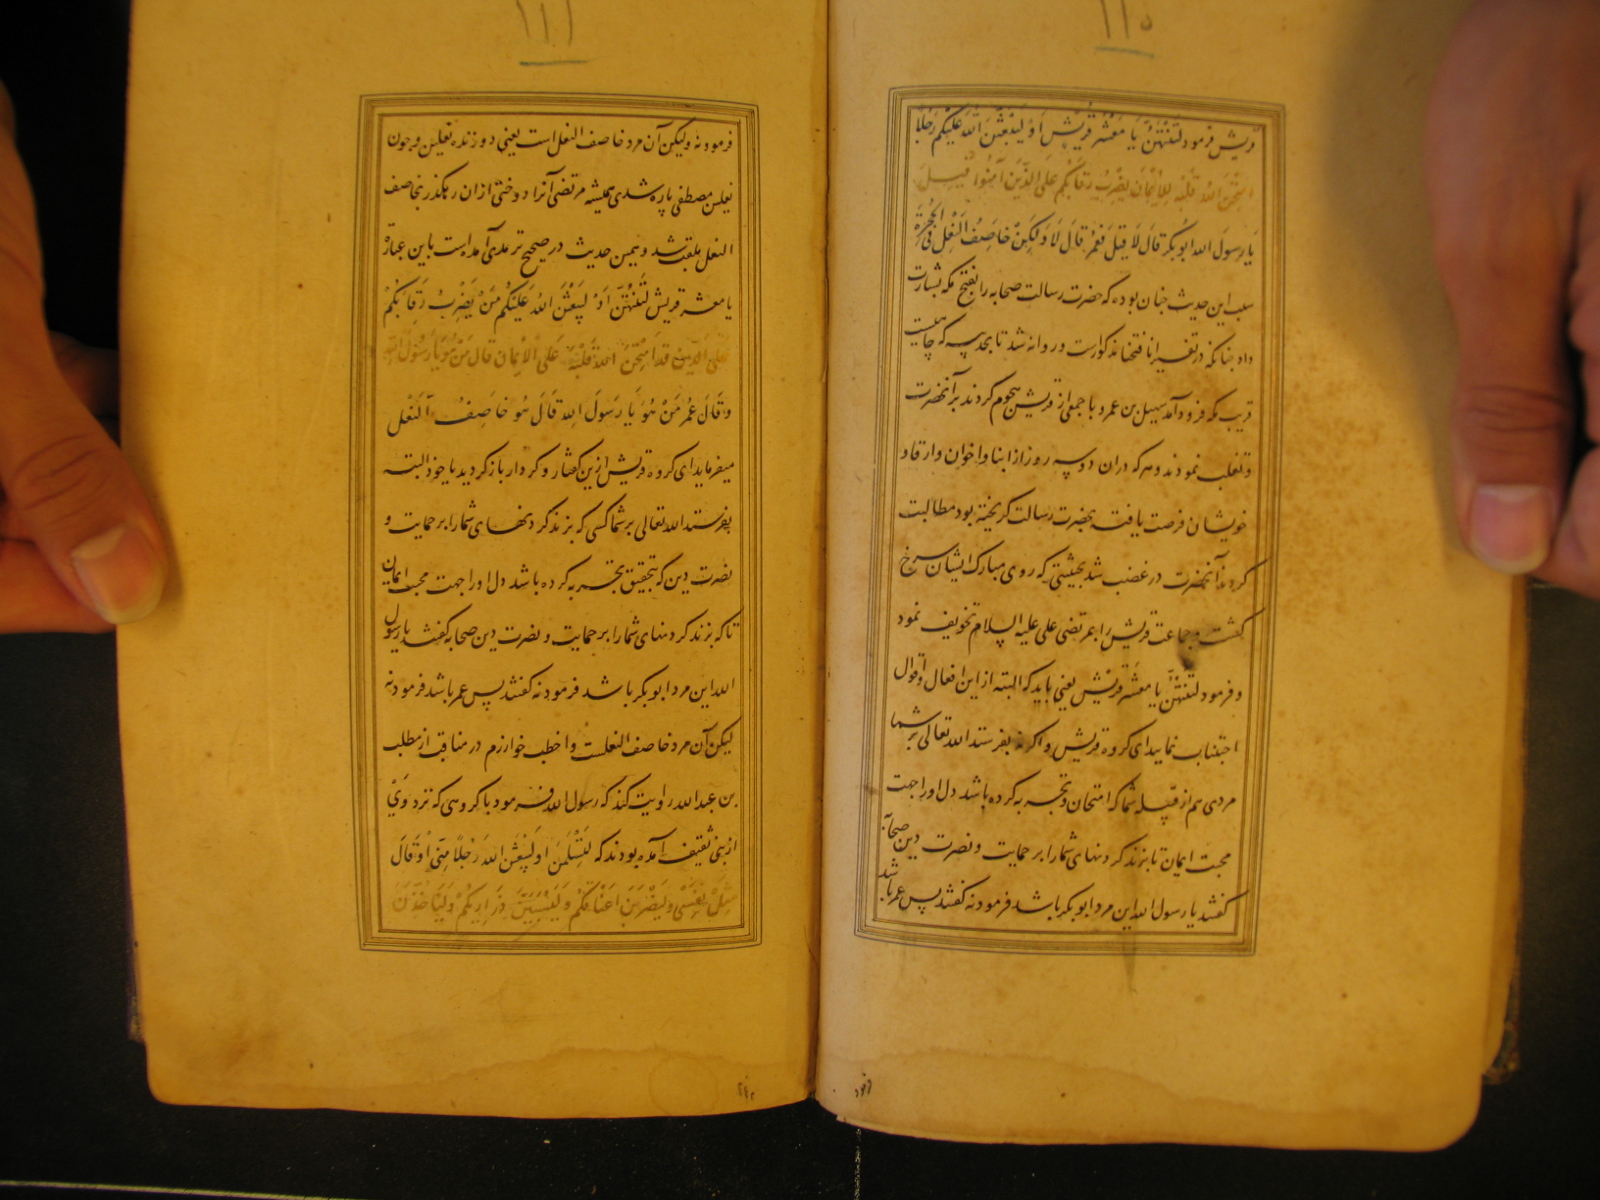 ۱۱۰
قریش فرمود لَتَنْتَهُنَّ یَا مَعْشَرَ قُرَیْشٍ اَوْ لَیَبْعَثَنَّ اللّٰهُ عَلَیْکُمْ رَجُلًا
امْتَحَنَ اللّٰهُ قَلْبَهُ لِلْاِیْمَانِ یَضْرِبُ رِقَابَکُمْ عَلَی الدِّیْنِ قِیْلَ
یَا رَسُوْلَ اللّٰهِ ابو بکر قَالَ لَا قِیلَ فَعُمَرُ قَالَ لَا وَلٰکِنْ خَاصِفُ النَّعْلِ فِی الْحُجْرَةِ
سبب این حدیث چنان بوده که حضرت رسالت صحابه را بفتح مکه بشارت
داد چنانکه در تفسیر انا فتحنا مذکورست و روانه شد تا بحدیبیه که چاهیست
قریب مکه فرود آمد سهیل بن عمرو با جمعی از قریش هجوم کردند بر آنحضرت
و تغلب نمودند و هر که دران دو سه روز از ابنا و اخوان و ارقا و
خویشان فرصت یافته بحضرت رسالت گریخته بود مطالبت
کردند آنحضرت در غضب شد بحیثیتی که روی مبارک ایشان سرخ
گشت و جماعت قریش را بمرتضی علی علیه السلام تخویف نمود
و فرمود لَتَنْتَهُنَّ یا مَعْشَرَ قریش یعنی باید که البته از این افعال و اقوال
اجتناب نمایید ای کروه قریش و اکر نه بفرستد الله تعالی بر شما
مردی هم از قبیله شما که امتحان و تجربه کرده باشد دل او را جهت
محبت ایمان تا بزند کردنهای شما را بر حمایت و نصرت دین صحابه
کفتند یا رسول الله این مرد ابو بکر باشد فرمود نه کفتند پس عمر باشد
فرمود
۱۱۱
فرمود نه ولیکن آن مرد خاصف النعل است یعنی دوزنده نعلین و چون
نعلین مصطفی پاره شدی همیشه مرتضی آنرا دوختی ازان رهکذر بخاصف
النعل ملقب شد و همین حدیث در صحیح ترمذی آمده است باین عبارة
یا معشر قریش لَتَنْتَهُنَّ اَوْ لَیَبْعَثَنَّ اللّٰهُ عَلَیْکُمْ مَنْ یَضْرِبُ رِقَابَکُمْ
عَلَی الدِّیْنِ قَدِ امْتَحَنَ اللّٰهُ قَلْبَهُ عَلَی الْاِیْمَانِ قَالَ مَنْ هُوَ یَا رَسُوْلَ اللّٰهِ
وَ قَالَ عُمَرُ مَنْ هُوَ یَا رَسُولَ اللّٰهِ قَالَ هُوَ خَاصِفُ النَّعْلِ
میفرماید ای کروه قریش ازین کفتار و کردار باز کردید یا خود البته
بفرستد الله تعالی بر شما کسی که بزند کردنهای شما را بر حمایت و
نصرت دین که بتحقیق تجربه کرده باشد دل او را جهت محبت ایمان
تا که بزند کردنهای شما را بر حمایت و نصرت دین صحابه کفتند یا رسول
الله این مرد ابو بکر باشد فرمود نه کفتند پس عمر باشد فرمود نه
لیکن آن مرد خاصف النعلست و اخطب خوارزم در مناقب از مطلب
بن عبد الله روایت کند که رسول الله فرمود با کروهی که نزد وَیْ
از بنی ثقیف آمده بودند که لَتُسْلِمُنَّ اَوْ لَیَبْعَثَنَّ اللّٰهُ رَجُلًا مِنِّی اَوْ قَالَ
مِثْلَ نَفْسِی وَ لَیَضْرِبَنَّ اَعْنَاقَکُمْ وَ لَیَسْبِیَنَّ ذَرَارِیَکُمْ وَ لَیَأْخُذَنَّ